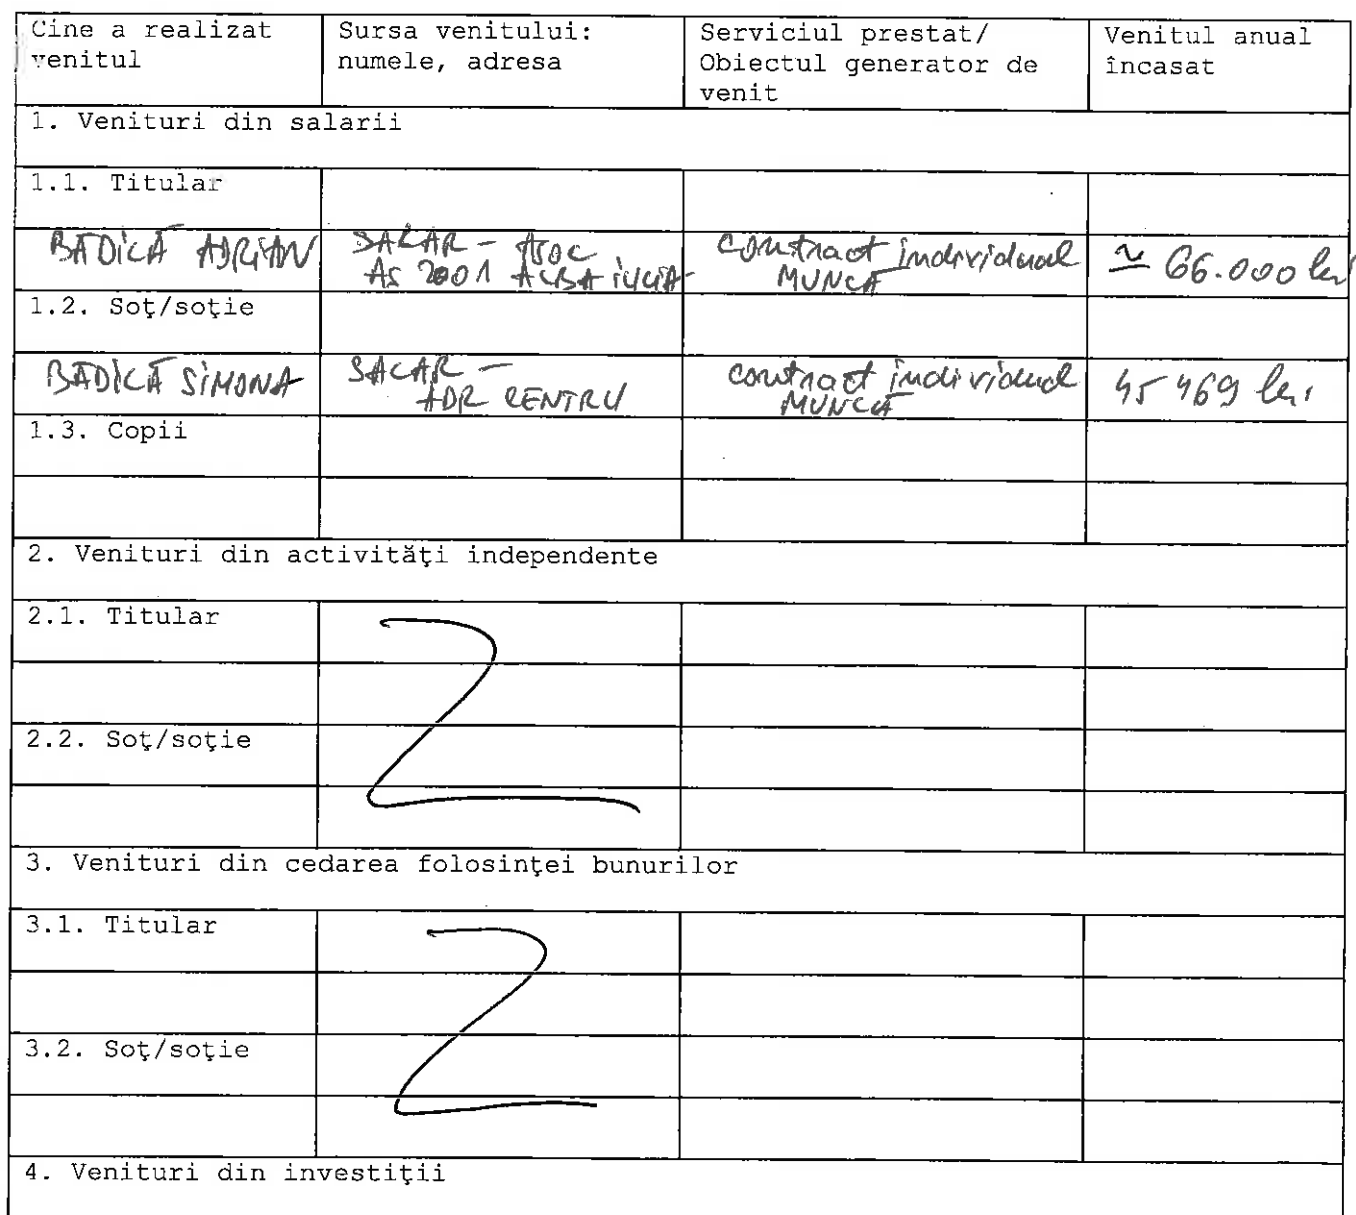 Cine a realizat venitul
Sursa venitului: numele, adresa
Serviciul prestat/ Obiectul generator de venit
Venitul anual încasat
1. Venituri din salarii
1.1. Titular
BĂDICĂ ADRIAN
SALAR - ASOC
AS 2001 ALBA IULIA
contract individual
MUNCĂ
≃ 66.000 lei
1.2. Soţ/soţie
BĂDICĂ SIMONA
SALAR -
ADR CENTRU
contract individual
MUNCĂ
45 469 lei
1.3. Copii
2. Venituri din activităţi independente
2.1. Titular
2.2. Soţ/soţie
3. Venituri din cedarea folosinţei bunurilor
3.1. Titular
3.2. Soţ/soţie
4. Venituri din investiţii